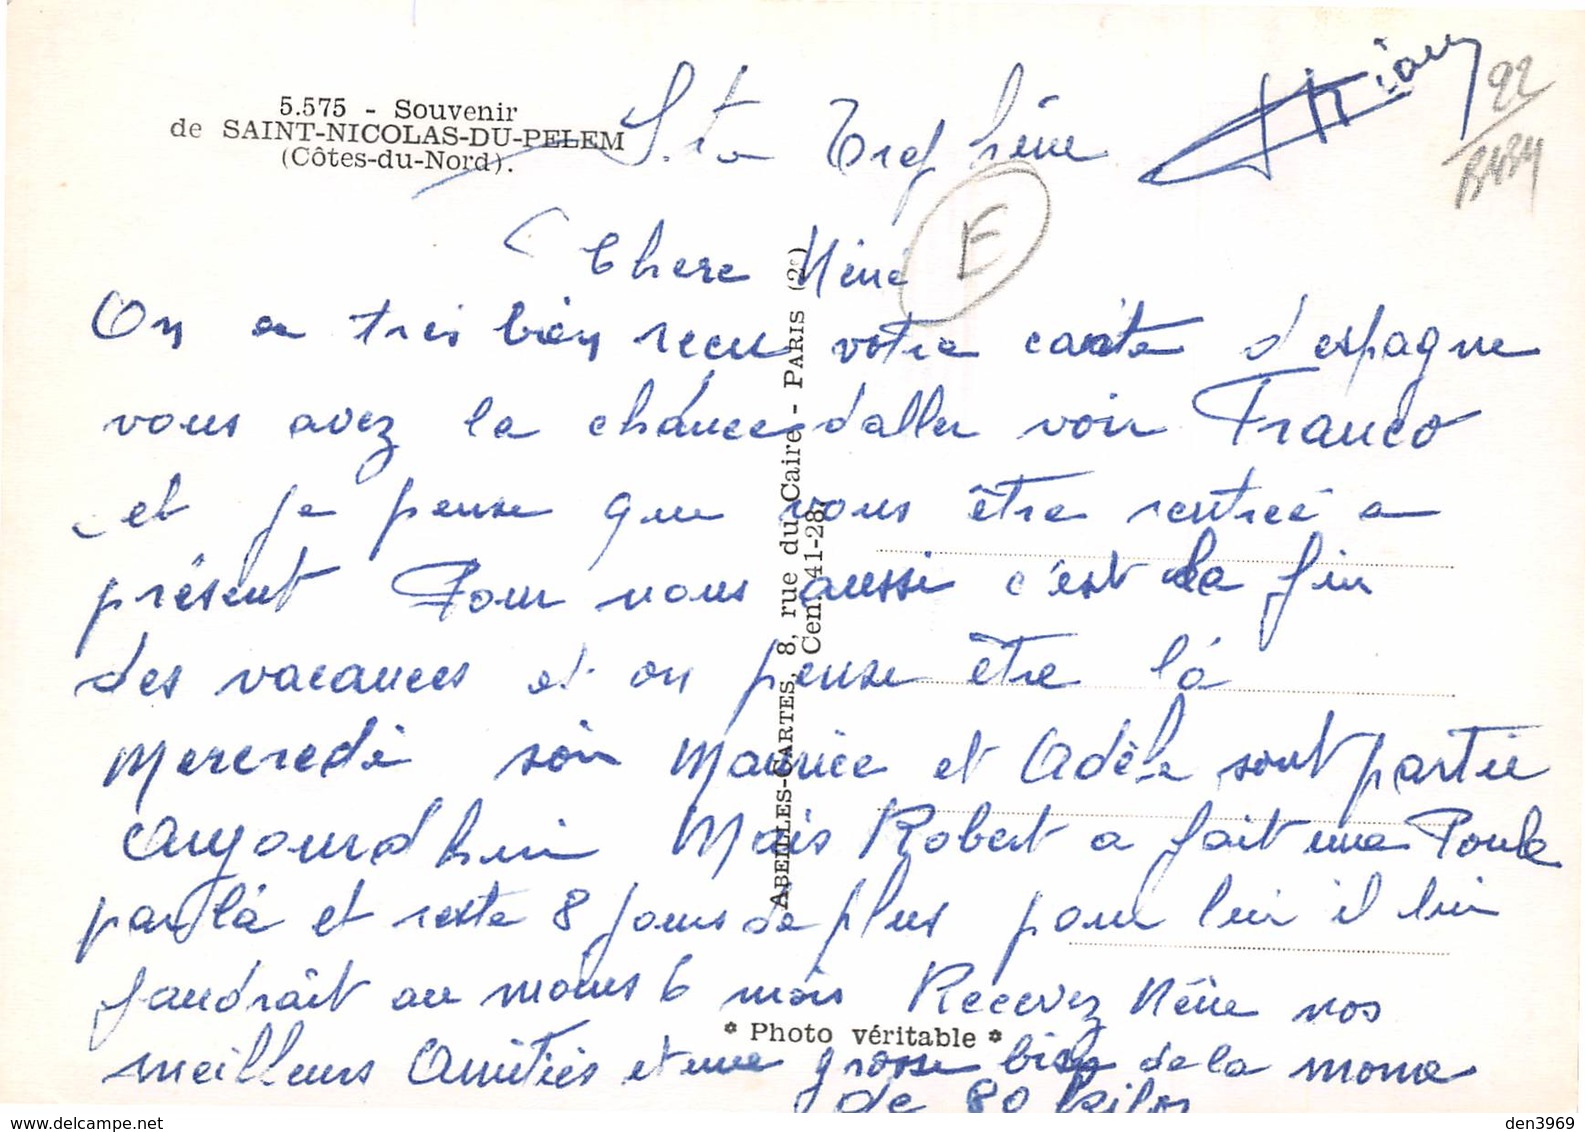 5.575 - Souvenir
de SAINT-NICOLAS-DU-PELEM
(Côtes-du-Nord).
22
E
Chere Néné
On a très bien recu votre carte d'espagne
vous avez la chance daller voir Franco
et je pense que vous être rentreé a
présent Pour nous aussi c'est la fin
des vacances et on pense être là
Mercredi soir Maurice et Adèle sont partie
aujourdhui Mais Robert a fait une Poule
par là et reste 8 jours de plus pour lui il lui
faudrait au moins 6 mois Recevez Néne nos
meilleurs Amitiés et une grosse bise de la mome
de 80 kilos
ABEILLES-CARTES, 8, rue du Caire - PARIS (2e)
Cen. 41-28.
* Photo véritable *
den3969